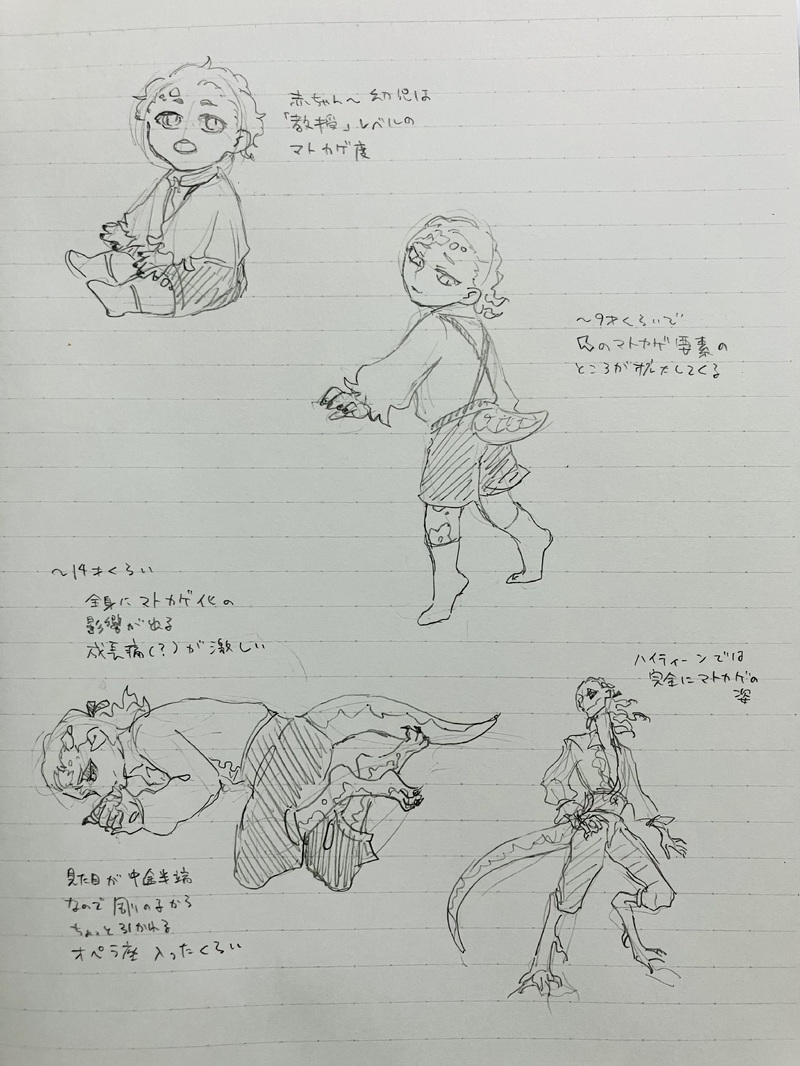 赤ちゃん〜幼児は
「教授」レベルの
マトカゲ度
〜9才くらいで
のマトカゲ要素の
ところが拡大してくる
〜14才くらい
全身にマトカゲ化の
影響が出る
成長痛(?)が激しい
ハイティーンでは
完全にマトカゲの
姿
見た目が中途半端
なので 周りの子から
ちょっと引かれる
オペラ座 入ったくらい